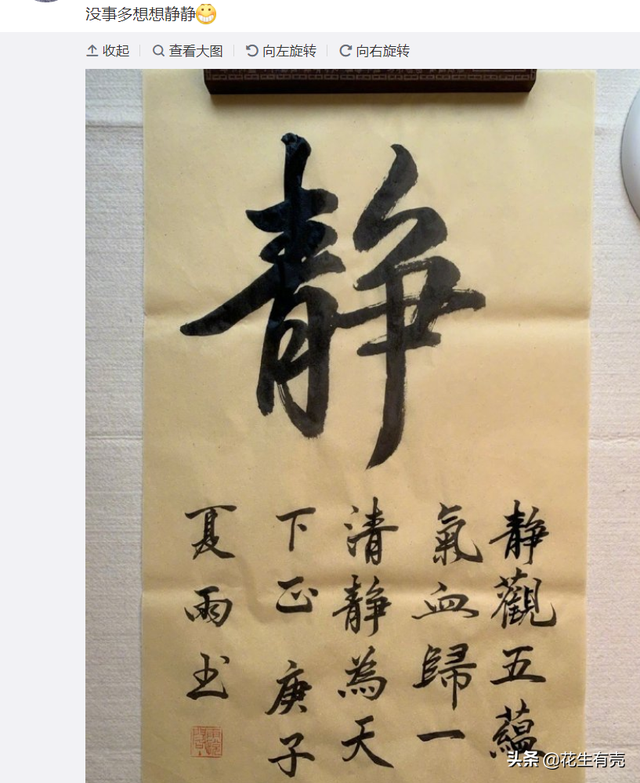 没事多想想静静
收起 查看大图 向左旋转 向右旋转
静
静觀五蘊
氣血歸一
清静為天
下正 庚子
夏雨书
头条 @花生有壳